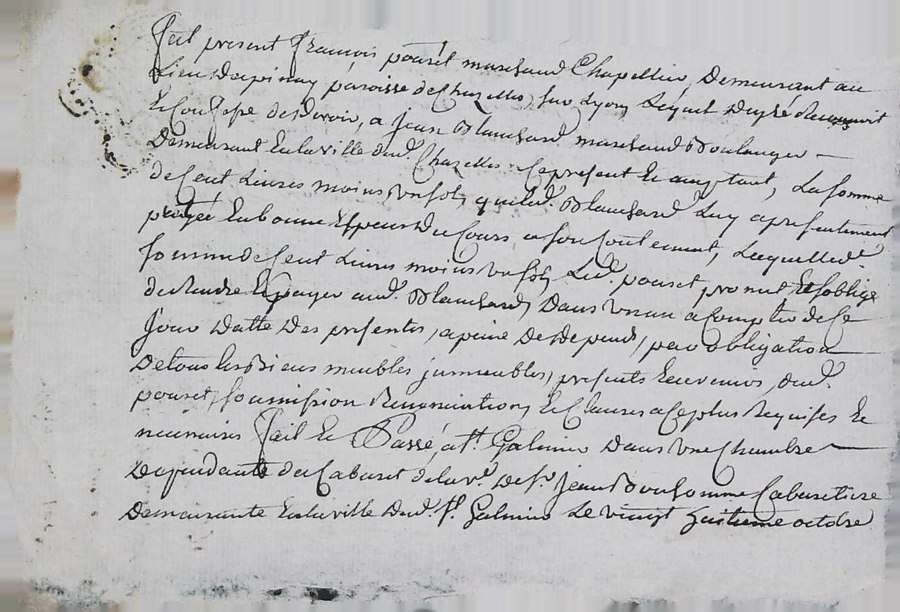 fut present françois pouset marchand Chapellier, Demeurant au
Lieu Depinay paroisse de Chazelles sur Lyon, Lequel De gré
et Confesse debvoir, a jean Blanchard marchand Boulanger
Demeurant En la ville dud. Chazelles Cy present Et acceptant, La somme
de Cent Livres moins un sol, que led. Blanchard Luy a presentement
En bonne Espece du Cours, a son Contentement, Laquelle d.
somme de Cent Livres moins un sol, Led. pouset promet Et soblige
de Rendre Et payer aud. Blanchard, Dans un an a Compter de Ce
Jour Datte Des presentes, a peine De Depends, par obligation
De tous les Biens meubles immeubles, presents Et advenir, dud.
pouset, soumission Renonciations, Et Clauses a Ce plus Requises Et
necessaires fait Et Passé, a St. Galmier Dans une Chambre
Dependante du Cabaret de la ve. De Sr. jean Cabaretiere
Demeurante En la ville Dud. St. Galmier Le vingt huitieme octobre